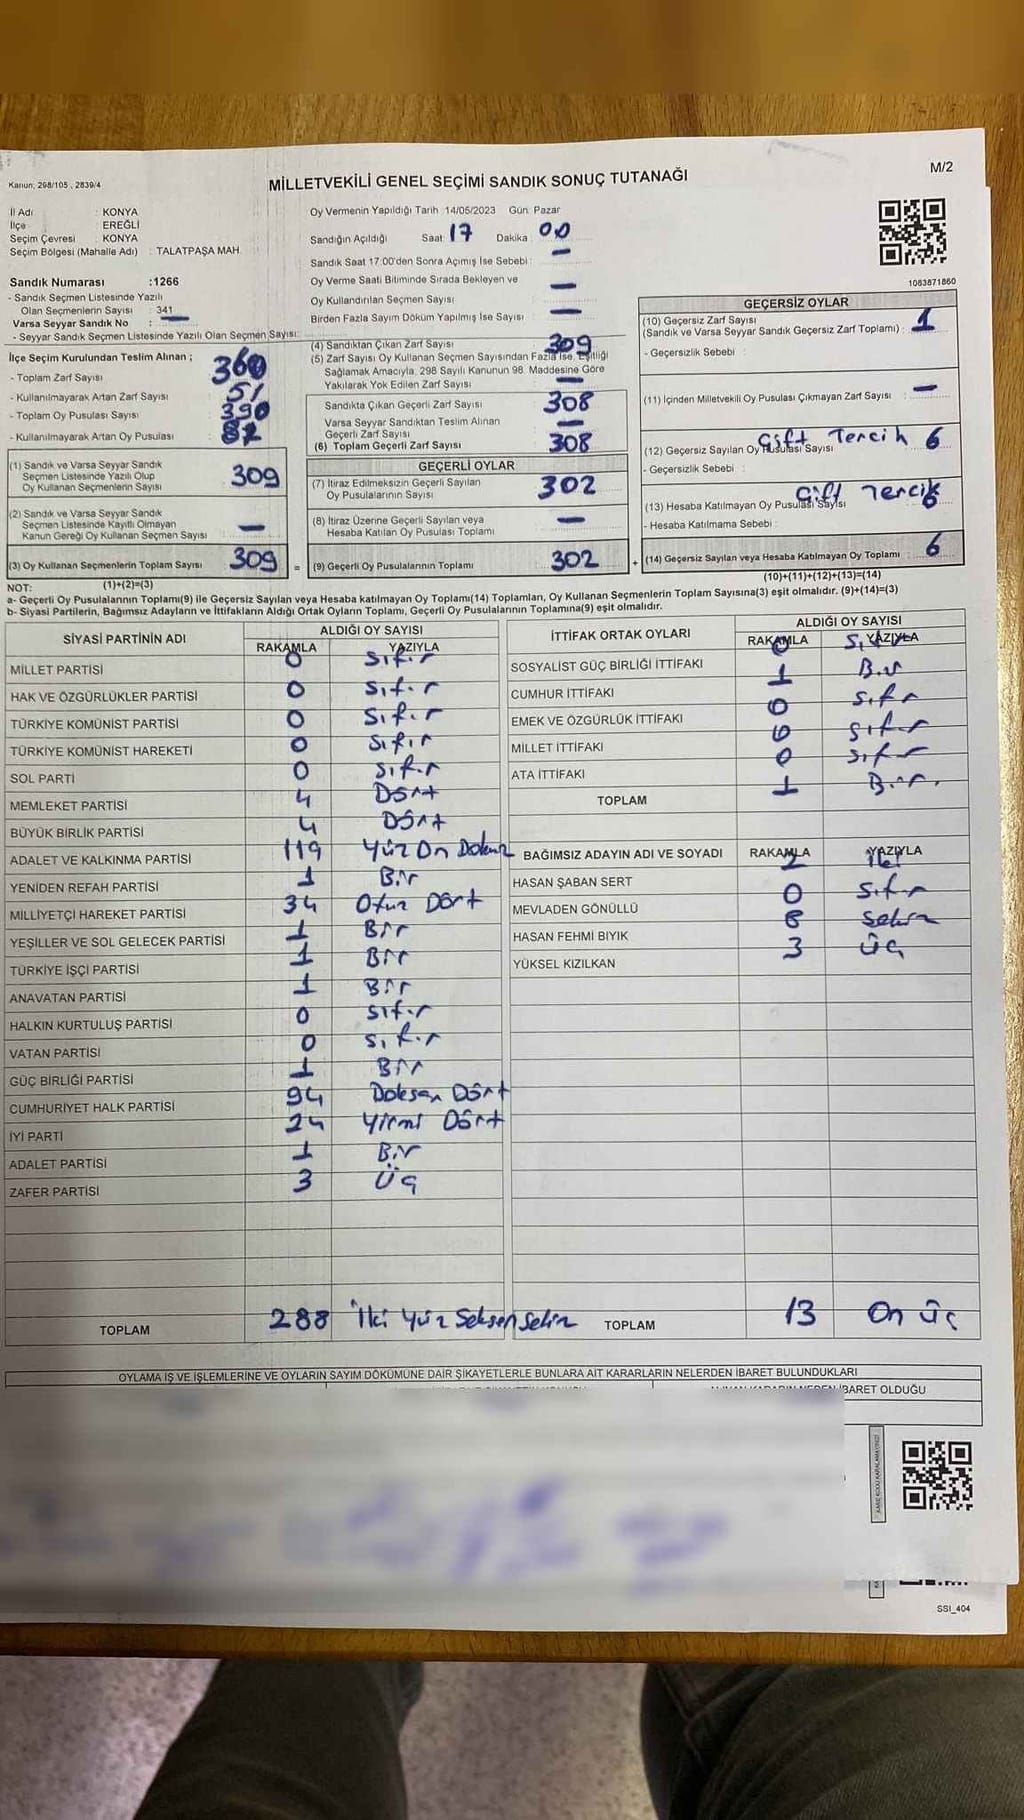 Kanun; 298/105 , 2839/4
MİLLETVEKİLİ GENEL SEÇİMİ SANDIK SONUÇ TUTANAĞI
M/2
İl Adı : KONYA
İlçe : EREĞLİ
Seçim Çevresi : KONYA
Seçim Bölgesi (Mahalle Adı) : TALATPAŞA MAH.
Sandık Numarası :1266
- Sandık Seçmen Listesinde Yazılı
Olan Seçmenlerin Sayısı : 341
Varsa Seyyar Sandık No : —
- Seyyar Sandık Seçmen Listesinde Yazılı Olan Seçmen Sayısı:
İlçe Seçim Kurulundan Teslim Alınan ;
- Toplam Zarf Sayısı : 360
- Kullanılmayarak Artan Zarf Sayısı : 51
- Toplam Oy Pusulası Sayısı : 390
- Kullanılmayarak Artan Oy Pusulası : 82
(1) Sandık ve Varsa Seyyar Sandık
Seçmen Listesinde Yazılı Olup
Oy Kullanan Seçmenlerin Sayısı 309
(2) Sandık ve Varsa Seyyar Sandık
Seçmen Listesinde Kayıtlı Olmayan
Kanun Gereği Oy Kullanan Seçmen Sayısı —
(3) Oy Kullanan Seçmenlerin Toplam Sayısı 309 =
Oy Vermenin Yapıldığı Tarih :14/05/2023 Gün: Pazar
Sandığın Açıldığı Saat: 17 Dakika : 00
Sandık Saat 17:00'den Sonra Açımış İse Sebebi : —
Oy Verme Saati Bitiminde Sırada Bekleyen ve
Oy Kullandırılan Seçmen Sayısı —
Birden Fazla Sayım Döküm Yapılmış İse Sayısı : —
(4) Sandıktan Çıkan Zarf Sayısı 309
(5) Zarf Sayısı Oy Kullanan Seçmen Sayısından Fazla İse, Eşitliği
Sağlamak Amacıyla, 298 Sayılı Kanunun 98. Maddesine Göre
Yakılarak Yok Edilen Zarf Sayısı —
Sandıkta Çıkan Geçerli Zarf Sayısı 308
Varsa Seyyar Sandıktan Teslim Alınan
Geçerli Zarf Sayısı —
(6) Toplam Geçerli Zarf Sayısı 308
GEÇERLİ OYLAR
(7) İtiraz Edilmeksizin Geçerli Sayılan
Oy Pusulalarının Sayısı 302
(8) İtiraz Üzerine Geçerli Sayılan veya
Hesaba Katılan Oy Pusulası Toplamı —
(9) Geçerli Oy Pusulalarının Toplamı 302 +
1083871860
GEÇERSİZ OYLAR
(10) Geçersiz Zarf Sayısı
(Sandık ve Varsa Seyyar Sandık Geçersiz Zarf Toplamı) : 1
- Geçersizlik Sebebi :
(11) İçinden Milletvekili Oy Pusulası Çıkmayan Zarf Sayısı : —
Çift Tercih
(12) Geçersiz Sayılan Oy Pusulası Sayısı 6
- Geçersizlik Sebebi :
Çift Tercih
(13) Hesaba Katılmayan Oy Pusulası Sayısı
- Hesaba Katılmama Sebebi :
(14) Geçersiz Sayılan veya Hesaba Katılmayan Oy Toplamı : 6
NOT: (1)+(2)=(3) (10)+(11)+(12)+(13)=(14)
a- Geçerli Oy Pusulalarının Toplamı(9) ile Geçersiz Sayılan veya Hesaba katılmayan Oy Toplamı(14) Toplamları, Oy Kullanan Seçmenlerin Toplam Sayısına(3) eşit olmalıdır. (9)+(14)=(3)
b- Siyasi Partilerin, Bağımsız Adayların ve İttifakların Aldığı Ortak Oyların Toplamı, Geçerli Oy Pusulalarının Toplamına(9) eşit olmalıdır.
SİYASİ PARTİNİN ADI ALDIĞI OY SAYISI
RAKAMLA YAZIYLA
MİLLET PARTİSİ 0 Sıfır
HAK VE ÖZGÜRLÜKLER PARTİSİ 0 Sıfır
TÜRKİYE KOMÜNİST PARTİSİ 0 Sıfır
TÜRKİYE KOMÜNİST HAREKETİ 0 Sıfır
SOL PARTİ 0 Sıfır
MEMLEKET PARTİSİ 4 Dört
BÜYÜK BİRLİK PARTİSİ 4 Dört
ADALET VE KALKINMA PARTİSİ 119 Yüz On Dokuz
YENİDEN REFAH PARTİSİ 1 Bir
MİLLİYETÇİ HAREKET PARTİSİ 34 Otuz Dört
YEŞİLLER VE SOL GELECEK PARTİSİ 1 Bir
TÜRKİYE İŞÇİ PARTİSİ 1 Bir
ANAVATAN PARTİSİ 1 Bir
HALKIN KURTULUŞ PARTİSİ 0 Sıfır
VATAN PARTİSİ 0 Sıfır
GÜÇ BİRLİĞİ PARTİSİ 1 Bir
CUMHURİYET HALK PARTİSİ 94 Doksan Dört
İYİ PARTİ 24 Yirmi Dört
ADALET PARTİSİ 1 Bir
ZAFER PARTİSİ 3 Üç
TOPLAM 288 İki Yüz Seksen Sekiz
İTTİFAK ORTAK OYLARI ALDIĞI OY SAYISI
RAKAMLA YAZIYLA
SOSYALİST GÜÇ BİRLİĞİ İTTİFAKI 0 Sıfır
CUMHUR İTTİFAKI 1 Bir
EMEK VE ÖZGÜRLÜK İTTİFAKI 0 Sıfır
MİLLET İTTİFAKI 0 Sıfır
ATA İTTİFAKI 0 Sıfır
TOPLAM 1 Bir.
BAĞIMSIZ ADAYIN ADI VE SOYADI RAKAMLA YAZIYLA
HASAN ŞABAN SERT 2 İki
MEVLADEN GÖNÜLLÜ 0 Sıfır
HASAN FEHMİ BIYIK 8 Sekiz
YÜKSEL KIZILKAN 3 Üç
TOPLAM 13 On Üç
OYLAMA İŞ VE İŞLEMLERİNE VE OYLARIN SAYIM DÖKÜMÜNE DAİR ŞİKAYETLERLE BUNLARA AİT KARARLARIN NELERDEN İBARET BULUNDUKLARI
İBARET OLDUĞU
SSI_404